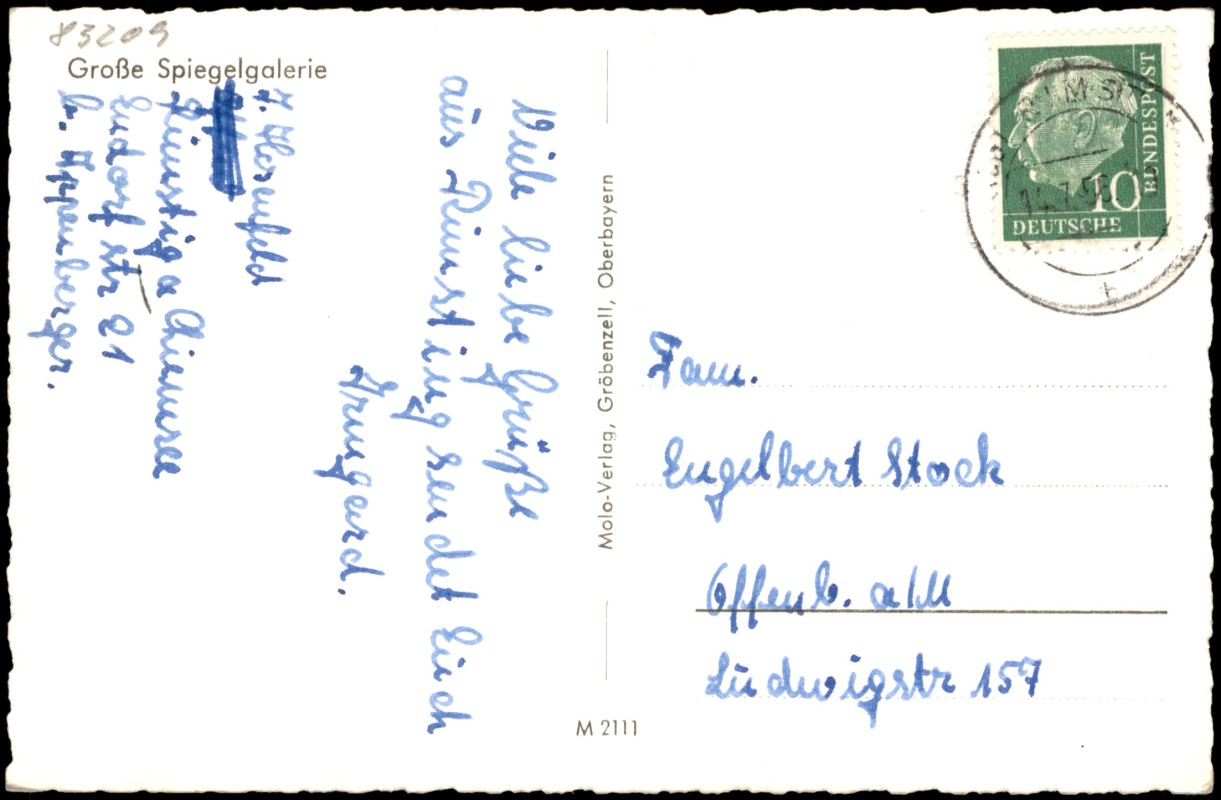 83209
Große Spiegelgalerie
J. Hosenfeld
Rimstig a Chiemsee
Endorf str 21
b. Appenberger.
Viele liebe Grüße
aus Rimsting sendet Euch
Irmgard.
Molo-Verlag, Gröbenzell, Oberbayern
M 2111
DEUTSCHE
BUNDESPOST
10
Fam.
Engelbert Stock
Offenb. a/M
Ludwigstr 157